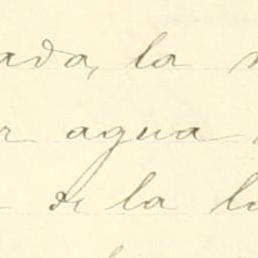 ada, la
r agua
de la